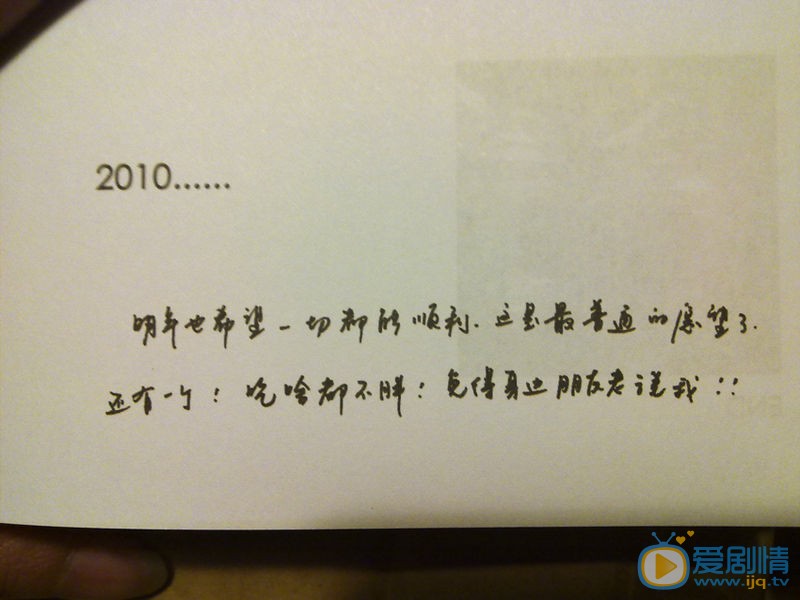 2010......
明年也希望一切都能顺利、这是最普通的愿望了.
还有一个！吃啥都不胖！免得身边朋友老说我！！
爱剧情
www.ijq.tv